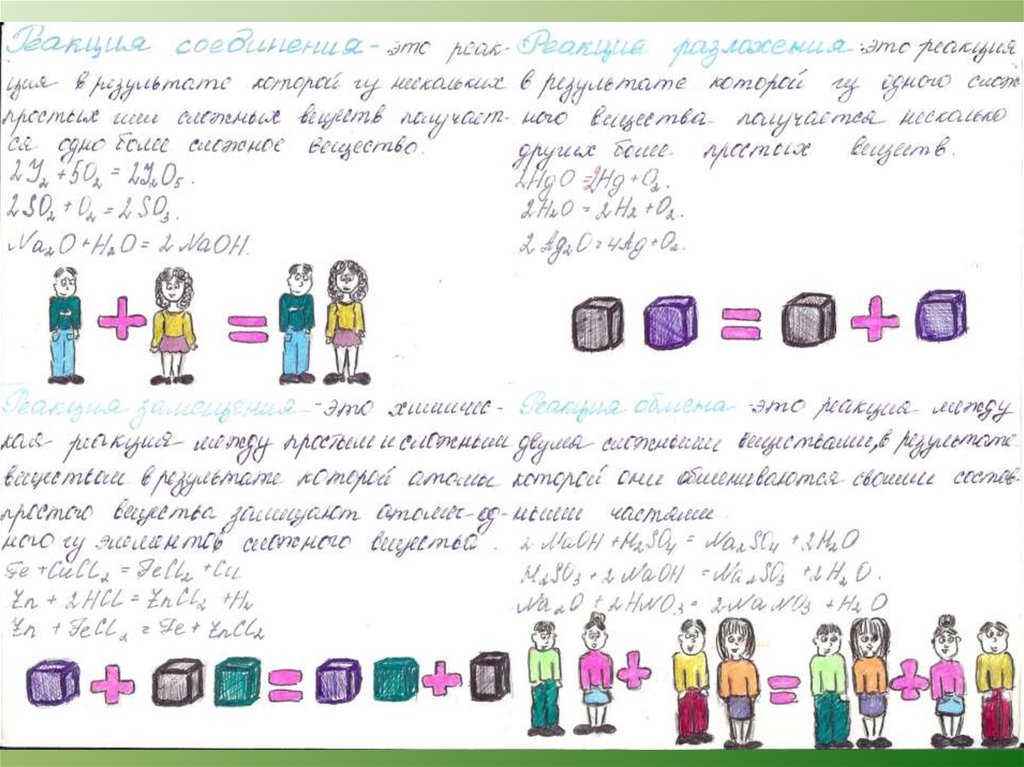 Реакция соединения - это реак-
ция в результате которой из нескольких
простых или сложных веществ получает-
ся одно более сложное вещество.
2I₂ + 5O₂ = 2I₂O₅.
2SO₂ + O₂ = 2SO₃.
Na₂O + H₂O = 2NaOH.
Реакция разложения - это реакция
в результате которой из одного слож-
ного вещества получается несколько
других более простых веществ.
2HgO = 2Hg + O₂.
2H₂O = 2H₂ + O₂.
2Ag₂O = 4Ag + O₂.
Реакция замещения - это химичес-
кая реакция между простым и сложным
веществом в результате которой атомы
простого вещества замещают атомы од-
ного из элементов сложного вещества.
Fe + CuCl₂ = FeCl₂ + Cu
Zn + 2HCl = ZnCl₂ + H₂
Zn + FeCl₂ = Fe + ZnCl₂
Реакция обмена - это реакция между
двумя сложными веществами, в результате
которой они обмениваются своими состав-
ными частями.
2NaOH + H₂SO₄ = Na₂SO₄ + 2H₂O
H₂SO₃ + 2NaOH = Na₂SO₃ + 2H₂O.
Na₂O + 2HNO₃ = 2NaNO₃ + H₂O